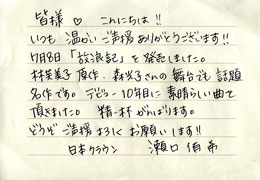 皆様♡ こんにちは!!
いつも 温かい ご声援 ありがとうございます!!
7月8日「放浪記」を発売しました。
林芙美子原作、森光子さんの舞台でも話題
名作です。デビュー10年目に素晴らしい曲で
頂きました。精一杯がんばります。
どうぞ ご声援 よろしく お願いします!!
日本クラウン 瀬口侑希